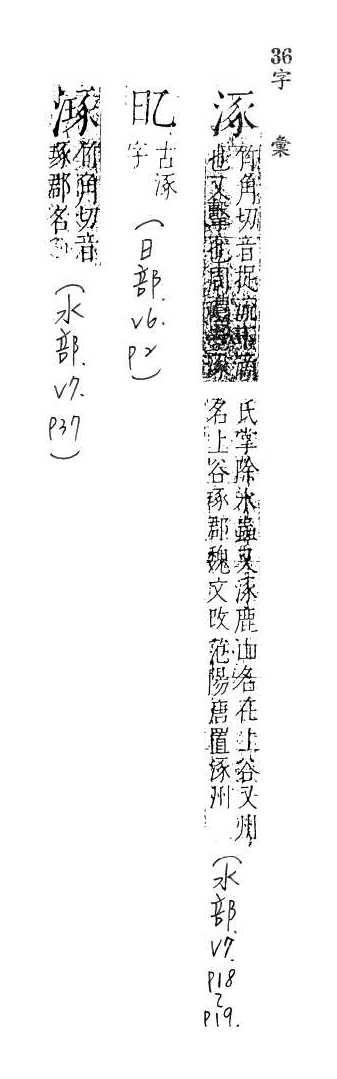 36字　彙
涿
竹角切音捉流滴
也又擊也周禮壺涿
氏掌除水蟲又涿鹿山名在上谷又州
名上谷琢郡魏文改范陽唐置涿州
(水部. V7. P18~P19.)
古涿
字
(日部. V6. P2)
竹角切音
琢郡名
(水部. V7. P37)